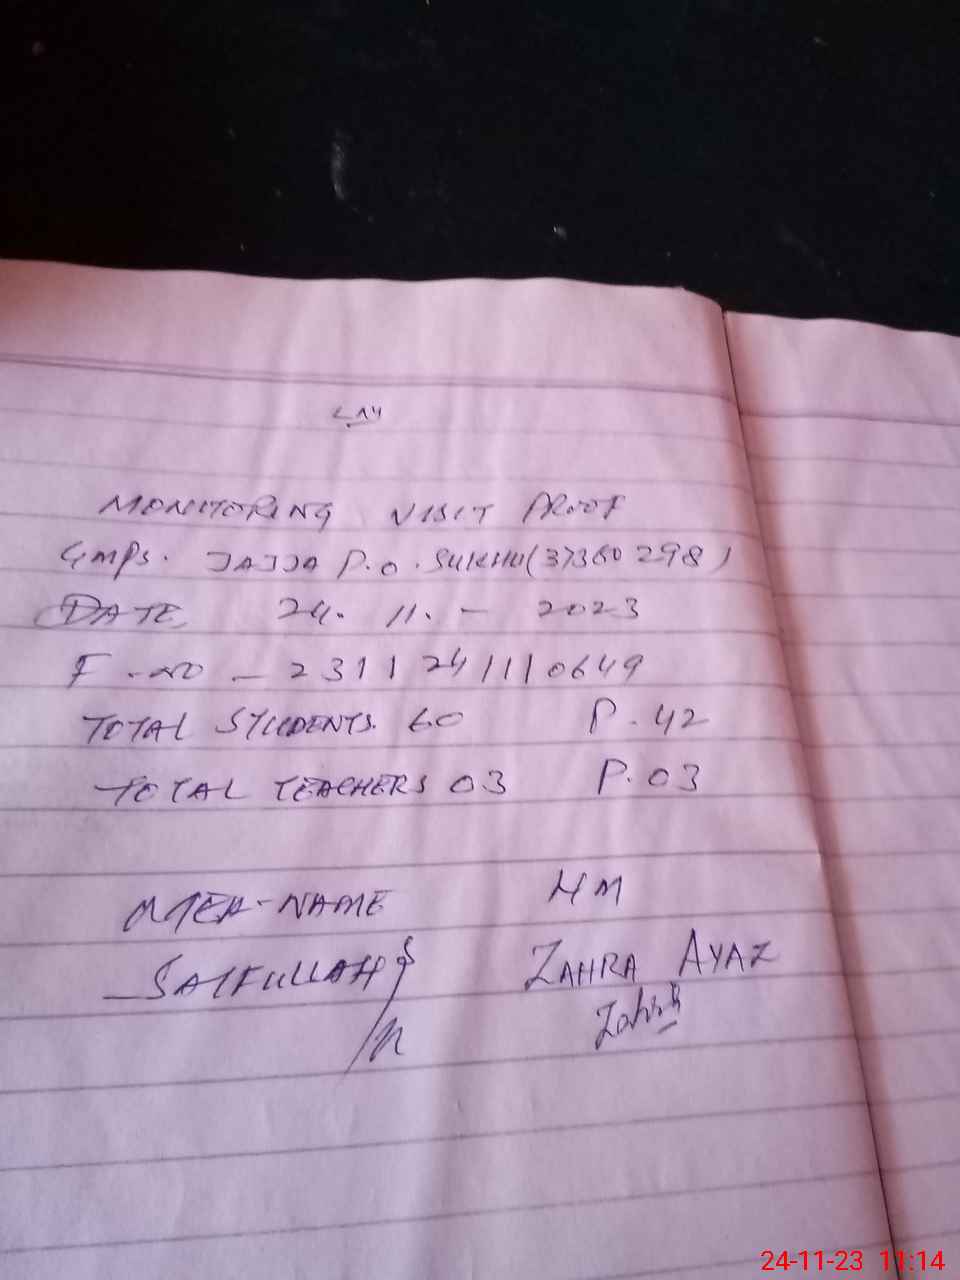 MONITORING VISIT PROOF
GMPS. JAJJA P.O. SUKHU (37360298)
DATE 24. 11. - 2023
F-NO - 2311241110649
TOTAL STUDENTS. 60 P. 42
TOTAL TEACHERS 03 P. 03
MEA-NAME HM
SAIFULLAH ZAHRA AYAZ
Zahra
24-11-23 11:14